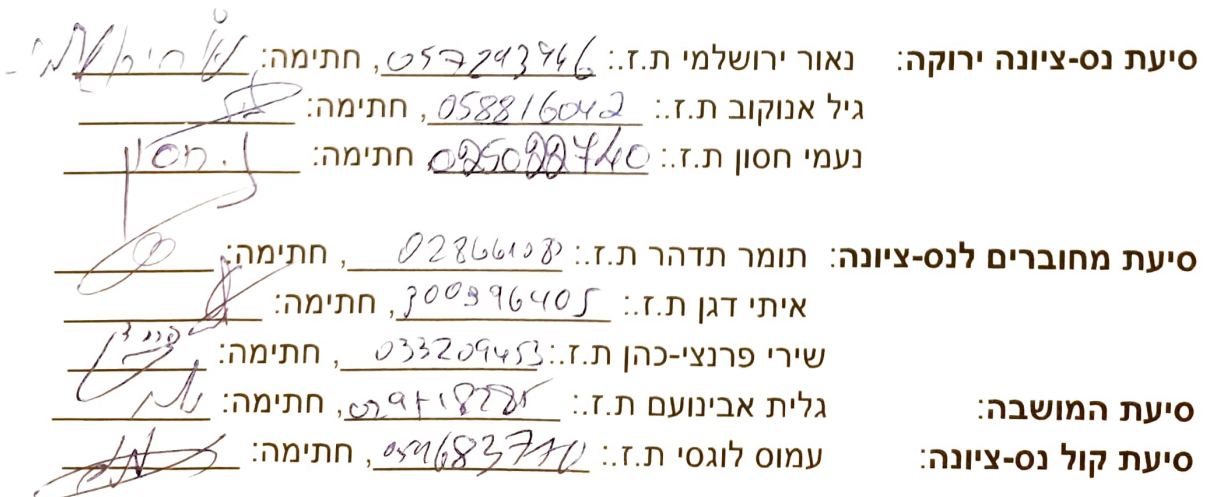 סיעת נס-ציונה ירוקה: נאור ירושלמי ת.ז.: 057293946, חתימה:
גיל אנוקוב ת.ז.: 058816042, חתימה:
נעמי חסון ת.ז.: חתימה: נ. חסון
סיעת מחוברים לנס-ציונה: תומר תדהר ת.ז.: חתימה:
איתי דגן ת.ז.: 300396405, חתימה:
שירי פרנצי-כהן ת.ז.: 033209453, חתימה:
סיעת המושבה: גלית אבינועם ת.ז.: חתימה:
סיעת קול נס-ציונה: עמוס לוגסי ת.ז.: חתימה: